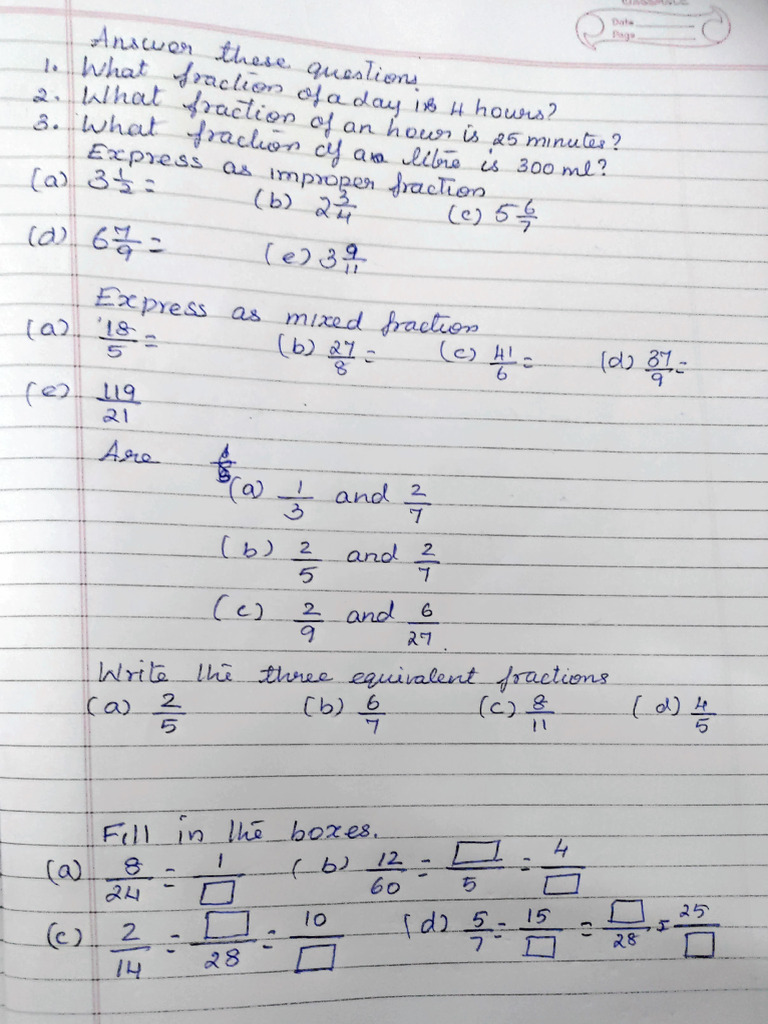 CLASSMATE
Date
Page
Answer these questions
1. What fraction of a day is 4 hours?
2. What fraction of an hour is 25 minutes?
3. What fraction of a litre is 300 ml?
Express as improper fraction
(a) 3 1/2 = (b) 2 3/4 (c) 5 6/7
(d) 6 7/9 = (e) 3 9/11
Express as mixed fraction
(a) 18/5 = (b) 27/8 = (c) 41/6 = (d) 37/9 =
(e) 119/21
Are
(a) 1/3 and 2/7
(b) 2/5 and 2/7
(c) 2/9 and 6/27
Write the three equivalent fractions
(a) 2/5 (b) 6/7 (c) 8/11 (d) 4/5
Fill in the boxes.
(a) 8/24 = 1/□ (b) 12/60 = □/5 = 4/□
(c) 2/14 = □/28 = 10/□ (d) 5/7 = 15/□ = □/28 = 25/□